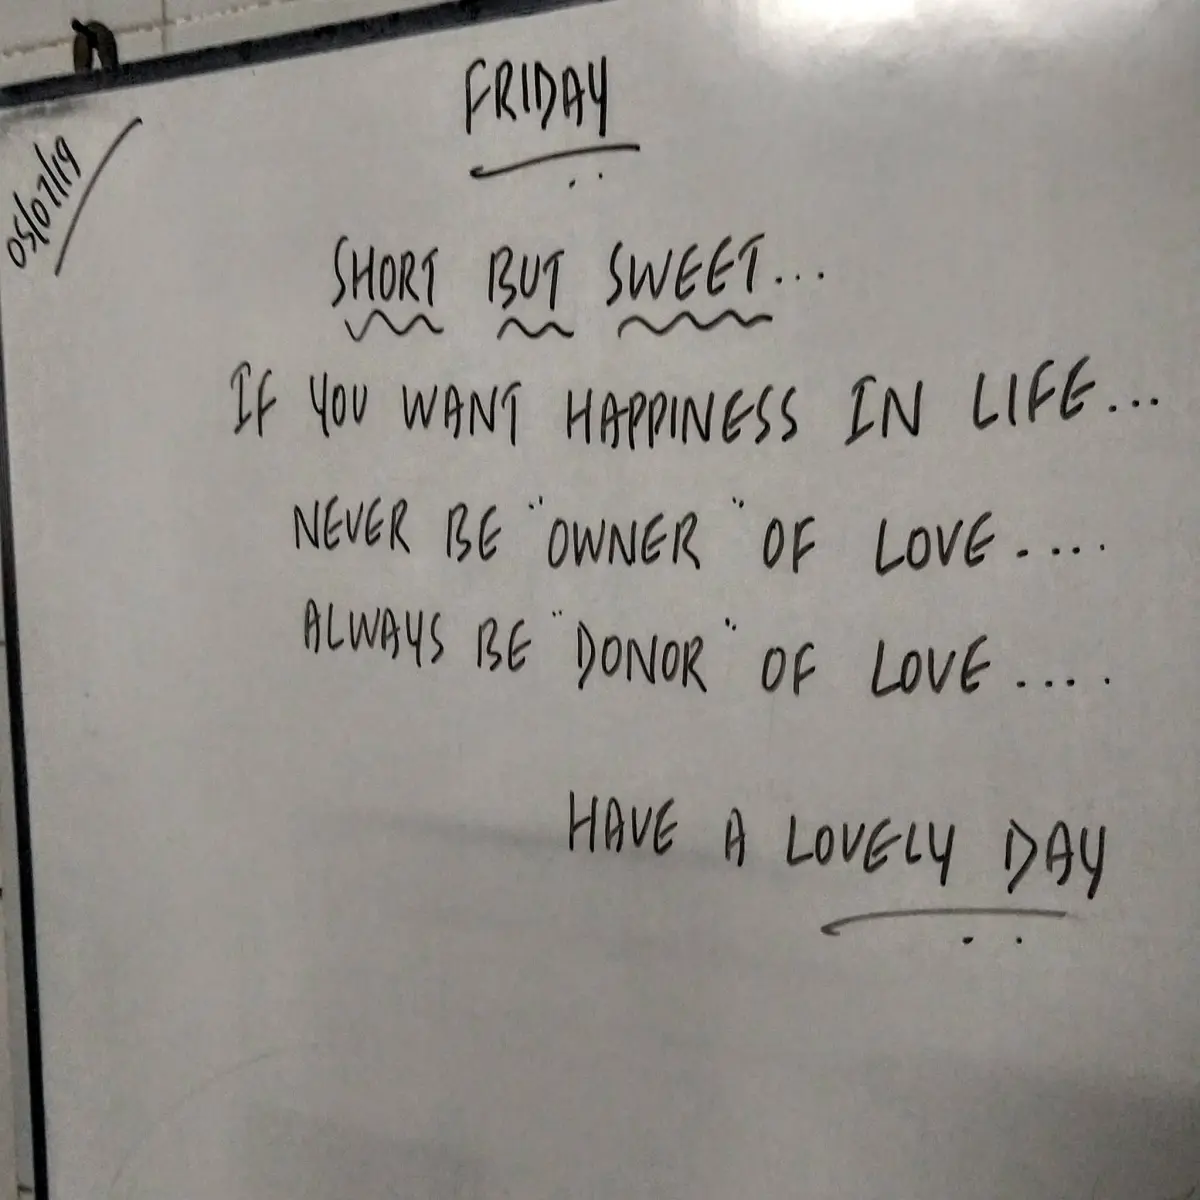 FRIDAY
05/07/19
SHORT BUT SWEET...
IF YOU WANT HAPPINESS IN LIFE...
NEVER BE "OWNER" OF LOVE....
ALWAYS BE "DONOR" OF LOVE....
HAVE A LOVELY DAY